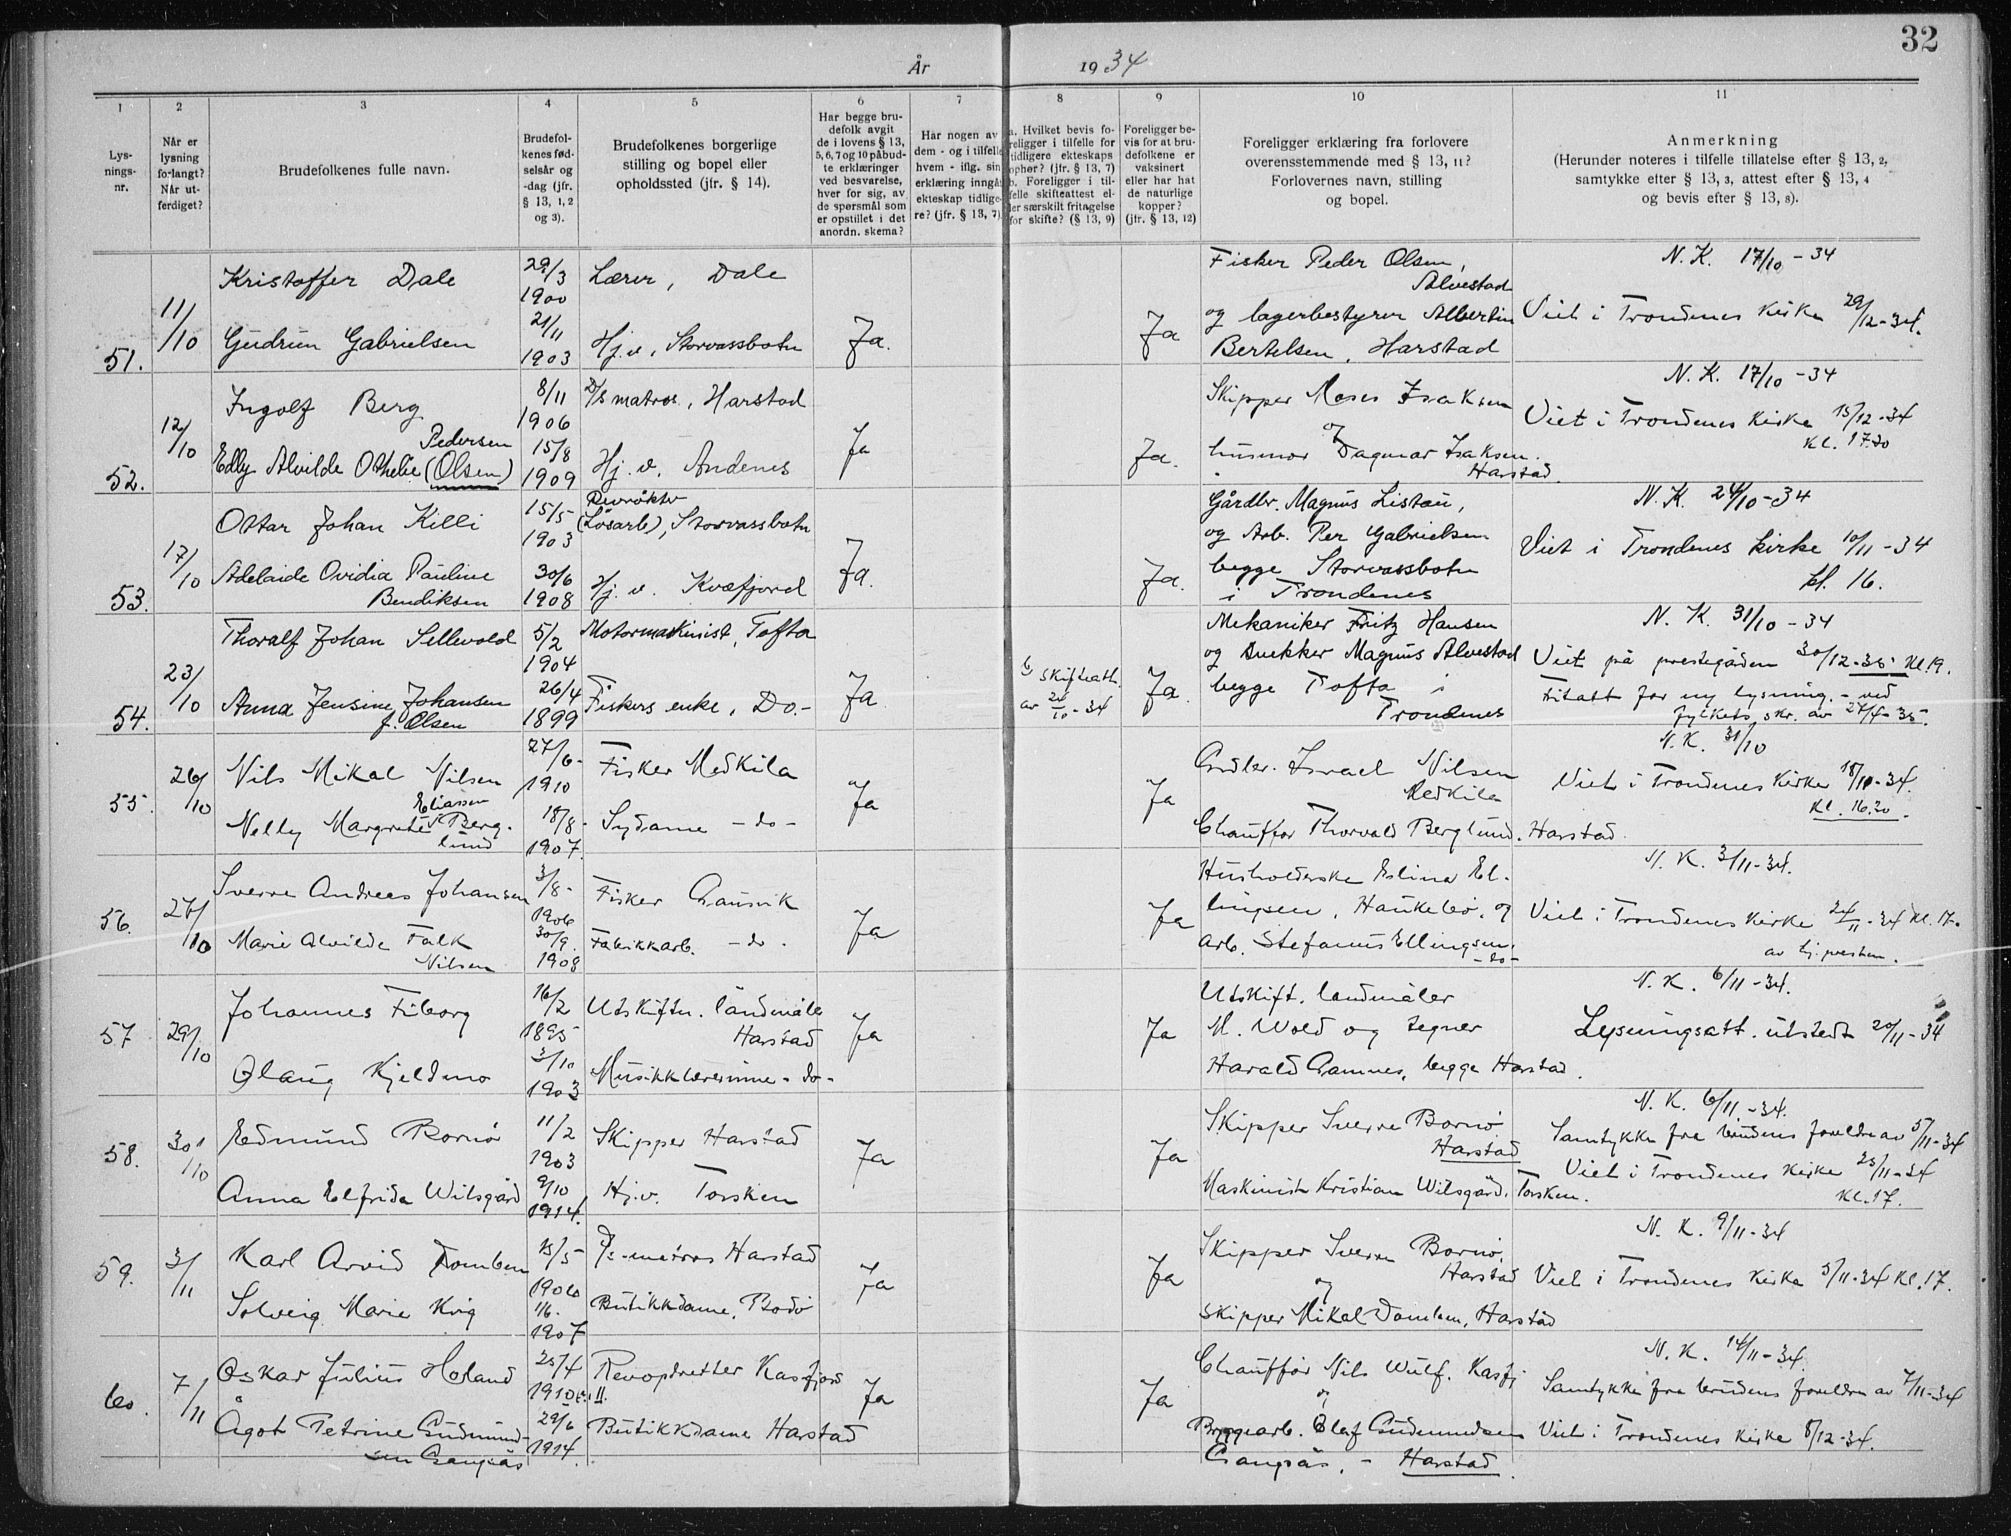 32
År 1934
1 2 3 4 5 6 7 8 9 10 11
Lys-
nings-
nr.
Når er
lysning
forlangt?
Når ut-
ferdiget?
Brudefolkenes fulle navn.
Brudefol-
kenes fød-
selsår og
-dag (jfr.
§ 13, 1, 2
og 3).
Brudefolkenes borgerlige
stilling og bopel eller
opholdssted (jfr. § 14).
Har begge bru-
defolk avgit
de i lovens § 13,
5, 6, 7 og 10 påbud-
te erklæringer
ved besvarelse,
hver for sig, av
de spørsmål som
er opstillet i det
anordn. skema?
Har nogen av
dem - og i tilfelle
hvem - iflg. sin
erklæring inngå
ekteskap tidlige-
re? (jfr. § 13, 7)
a. Hvilket bevis fo-
religger i tilfelle for
tidligere ekteskaps
ophør? (jfr. § 13, 7)
b. Foreligger i til-
felle skifteattest el-
ler særskilt fritagelse
for skifte? (§ 13, 9)
Foreligger be-
vis for at bru-
defolkene er
vaksinert
eller har hat
de naturlige
kopper?
(jfr. § 13, 12)
Foreligger erklæring fra forlovere
overensstemmende med § 13, 11?
Forlovernes navn, stilling
og bopel.
Anmerkning
(Herunder noteres i tilfelle tillatelse efter § 13, 2,
samtykke efter § 13, 3, attest efter § 13, 4
og bevis efter § 13, 8).
51.
11/10
Kristoffer Dale
29/3
1900
Lærer, Dale
Gudrun Gabrielsen
21/11
1903
Hj. v., Storvassbotn
Ja.
Ja
Fisker Peder Olsen,
Alvestad
og lagerbestyrer Albertin
Bertelsen, Harstad
N. K. 17/10 - 34
Viet i Trondenes Kirke 29/12-34.
52.
12/10
Ingolf Berg
8/11
1906
D/s matros, Harstad
Pedersen
Edly Alvilde Othelie (Olsen)
15/8
1909
Hj. v. Andenes
Ja
Ja.
Skipper Moses Isaksen
og
husmor Dagmar Isaksen.
Harstad.
N. K. 17/10 - 34
Viet i Trondenes Kirke 15/12-34
Kl. 17.30
53.
17/10
Ottar Johan Killi
15/5
1903
Revrøkter
(Løsarb), Storvassbotn
Adelaide Ovidia Pauline
Bendiksen
30/6
1908
Hj. v. Kvæfjord
Ja.
Ja.
Gårdbr. Magnus Listau,
og Arb. Per Gabrielsen
begge Storvassbotn
i Trondenes
N. K. 24/10 - 34
Viet i Trondenes kirke 10/11 - 34
kl. 16.
54.
23/10
Thoralf Johan Sellevold
5/2
1904
Motormaskinist, Tofta
Anna Jensine Johansen
f. Olsen
26/4
1899
Fiskers enke, Do.-
Ja
b) skifteatt.
av 20/10 - 34
Ja.
Mekaniker Fritz Hansen
og Snekker Magnus Alvestad
begge Tofta i
Trondenes
N. K. 31/10 - 34
Viet på prestegården 30/12-35 Kl. 19.
Fitatt for ny lysning. - ved
fylkets skr. av 27/4-35.
55.
26/10
Nils Mikal Nilsen
27/6-
1910
Fisker Medkila
Eliassen
Nelly Margrete Berg-
lund
18/8-
1907.
Sydame - do -
Ja
Ja
Gndbr. Israel Nilsen
Medkila
Chauffør Thorvald Berglund. Harstad.
N. K. 31/10
Viet i Trondenes Kirke 18/11-34.
Kl. 16.30.
56.
27/10
Sverre Andreas Johansen
3/8-
1906
Fisker Gausvik
Marie Alvilde Falk
Nilsen
30/9.
1908
Fabrikkarb. - do -
Ja
Ja
Husholderske Eline El-
lingsen, Haukebø, og
arb. Stefanus Ellingsen.
- do -
N. K. 3/11-34.
Viet i Trondenes Kirke 24/11-34 Kl. 17.
av hj. presten.
57
29/10
Johannes Fiborg
16/2
1895
Utskiftn. landmåler
Harstad
Olaug Kjeldmo
3/10
1903
Musikklærerinne - do -
Ja
Ja
Utskift. landmåler
M. Wold og tegner
Harald Gamnes, begge Harstad.
N. K. 6/11-34.
Lysningsatt. utstedt 20/11-34
58.
30/10
Edmund Bornø
11/2
1903
Skipper Harstad
Anna Elfrida Wilsgård
9/10
1914.
Hj.v. Torsken
Ja
Ja
Skipper Sverre Bornø
Harstad
Maskinist Kristian Wilsgård, Torsken.
N. K. 6/11.-34.
Samtykke fra brudens foreldre av 5/11-34
Viet i Trondenes Kirke 25/11-34
Kl. 17.
59.
3/11
Karl Arvid Tomben
15/5
1906
D/s-matros Harstad
Solveig Marie Krig
1/6.
1907
Butikkdame, Bodø
Ja
Ja
Skipper Sverre Bornø,
Harstad
og
skipper Mikal Damben, Harstad
N. K. 9/11-34
Viet i Trondenes Kirke 5/11-34 Kl. 17.
60.
7/11
Oskar Julius Holand
25/4
1910
Revopdretter Kasfjord
Ågot Petrine Gudmund-
sen Gangsås
29/6
1914.
Butikkdame Harstad
Ja
Ja
Chauffør Nils Wulf. Kasfj
og
Bryggearb. Olaf Gudmundsen
Gangsås, - Harstad.
N. K. 14/11-34.
Samtykke fra brudens foreldre av 7/11-34
Viet i Trondenes Kirke 8/12-34.